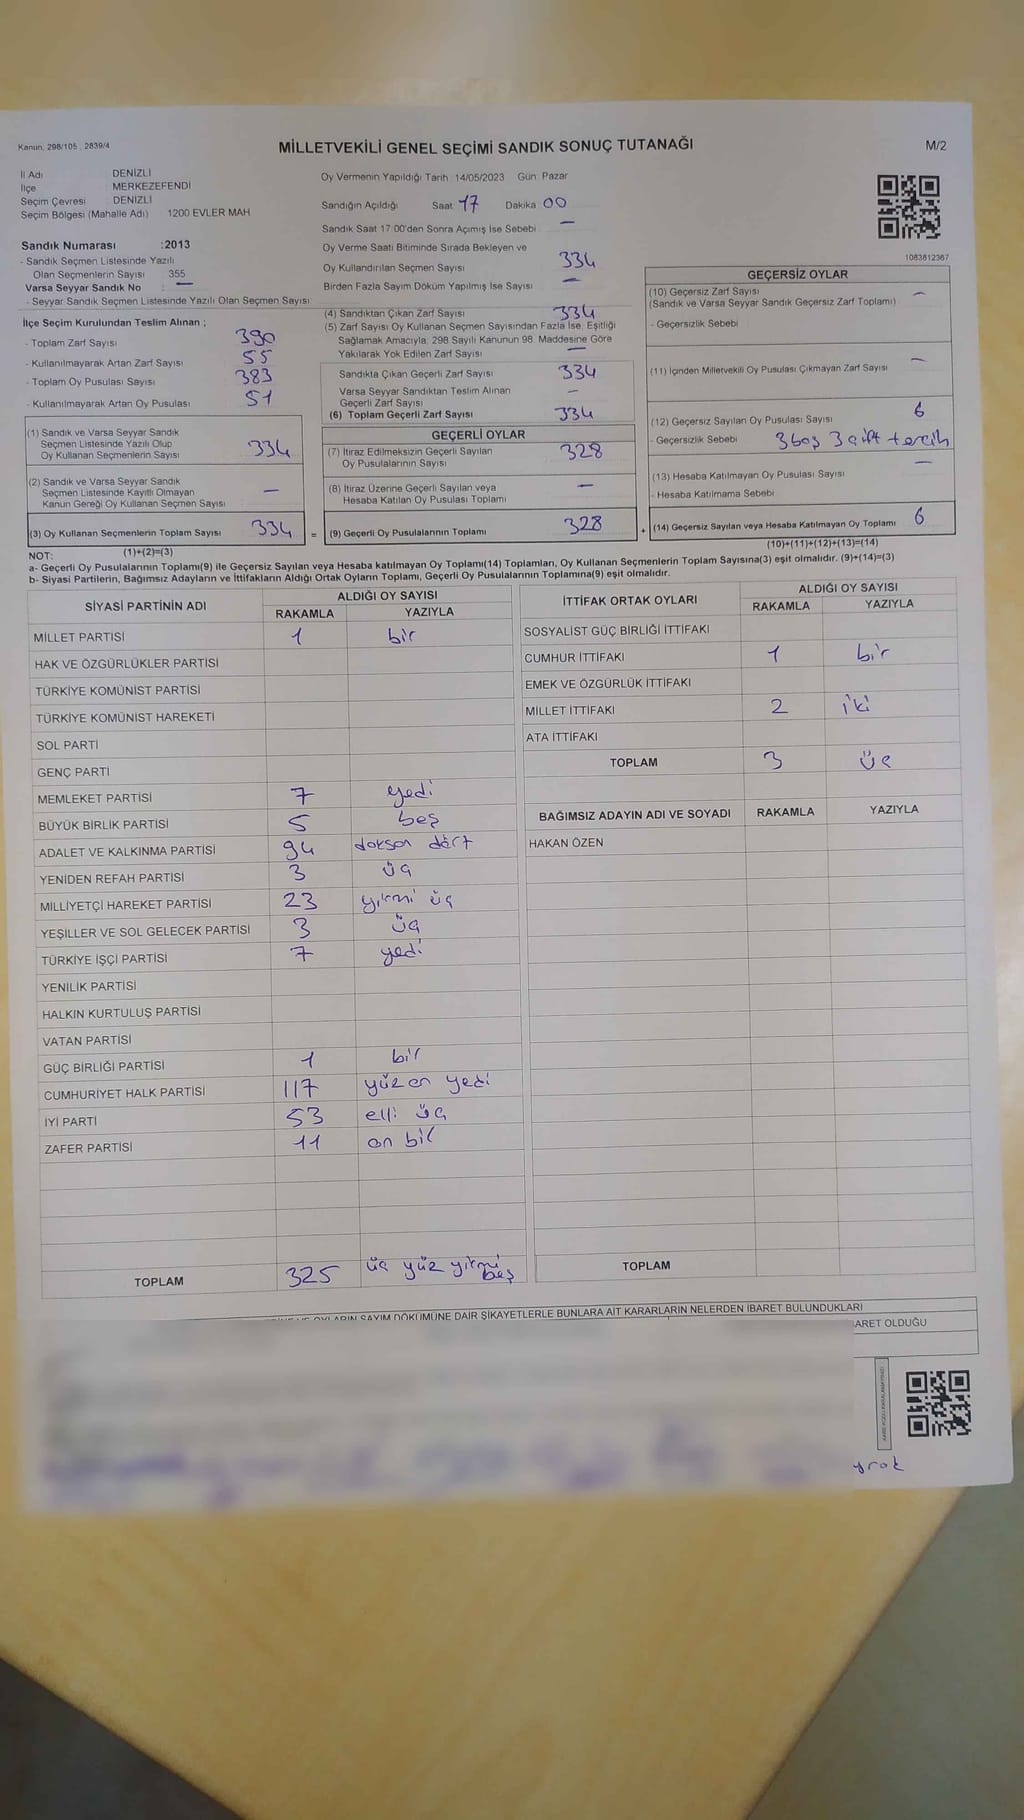 Kanun, 298/105 , 2839/4
MİLLETVEKİLİ GENEL SEÇİMİ SANDIK SONUÇ TUTANAĞI
M/2
İl Adı DENİZLİ
İlçe MERKEZEFENDİ
Seçim Çevresi DENİZLİ
Seçim Bölgesi (Mahalle Adı) 1200 EVLER MAH
Sandık Numarası :2013
- Sandık Seçmen Listesinde Yazılı
Olan Seçmenlerin Sayısı 355
Varsa Seyyar Sandık No : —
- Seyyar Sandık Seçmen Listesinde Yazılı Olan Seçmen Sayısı
İlçe Seçim Kurulundan Teslim Alınan ;
- Toplam Zarf Sayısı 390
- Kullanılmayarak Artan Zarf Sayısı 55
- Toplam Oy Pusulası Sayısı 383
- Kullanılmayarak Artan Oy Pusulası 51
(1) Sandık ve Varsa Seyyar Sandık
Seçmen Listesinde Yazılı Olup
Oy Kullanan Seçmenlerin Sayısı 334
(2) Sandık ve Varsa Seyyar Sandık
Seçmen Listesinde Kayıtlı Olmayan
Kanun Gereği Oy Kullanan Seçmen Sayısı —
(3) Oy Kullanan Seçmenlerin Toplam Sayısı 334
(1)+(2)=(3)
Oy Vermenin Yapıldığı Tarih :14/05/2023 Gün: Pazar
Sandığın Açıldığı Saat 17 Dakika 00
Sandık Saat 17:00'den Sonra Açımış İse Sebebi —
Oy Verme Saati Bitiminde Sırada Bekleyen ve
Oy Kullandırılan Seçmen Sayısı 334
Birden Fazla Sayım Döküm Yapılmış İse Sayısı —
(4) Sandıktan Çıkan Zarf Sayısı 334
(5) Zarf Sayısı Oy Kullanan Seçmen Sayısından Fazla İse, Eşitliği
Sağlamak Amacıyla, 298 Sayılı Kanunun 98. Maddesine Göre
Yakılarak Yok Edilen Zarf Sayısı —
Sandıkta Çıkan Geçerli Zarf Sayısı 334
Varsa Seyyar Sandıktan Teslim Alınan
Geçerli Zarf Sayısı —
(6) Toplam Geçerli Zarf Sayısı 334
GEÇERLİ OYLAR
(7) İtiraz Edilmeksizin Geçerli Sayılan
Oy Pusulalarının Sayısı 328
(8) İtiraz Üzerine Geçerli Sayılan veya
Hesaba Katılan Oy Pusulası Toplamı —
= (9) Geçerli Oy Pusulalarının Toplamı 328
1083812367
GEÇERSİZ OYLAR
(10) Geçersiz Zarf Sayısı —
(Sandık ve Varsa Seyyar Sandık Geçersiz Zarf Toplamı)
- Geçersizlik Sebebi
(11) İçinden Milletvekili Oy Pusulası Çıkmayan Zarf Sayısı —
(12) Geçersiz Sayılan Oy Pusulası Sayısı 6
- Geçersizlik Sebebi 3 boş 3 çift tercih
(13) Hesaba Katılmayan Oy Pusulası Sayısı —
- Hesaba Katılmama Sebebi
+ (14) Geçersiz Sayılan veya Hesaba Katılmayan Oy Toplamı 6
(10)+(11)+(12)+(13)=(14)
NOT:
a- Geçerli Oy Pusulalarının Toplamı(9) ile Geçersiz Sayılan veya Hesaba katılmayan Oy Toplamı(14) Toplamları, Oy Kullanan Seçmenlerin Toplam Sayısına(3) eşit olmalıdır. (9)+(14)=(3)
b- Siyasi Partilerin, Bağımsız Adayların ve İttifakların Aldığı Ortak Oyların Toplamı, Geçerli Oy Pusulalarının Toplamına(9) eşit olmalıdır.
SİYASİ PARTİNİN ADI ALDIĞI OY SAYISI
RAKAMLA YAZIYLA
MİLLET PARTİSİ 1 bir
HAK VE ÖZGÜRLÜKLER PARTİSİ
TÜRKİYE KOMÜNİST PARTİSİ
TÜRKİYE KOMÜNİST HAREKETİ
SOL PARTİ
GENÇ PARTİ
MEMLEKET PARTİSİ 7 yedi
BÜYÜK BİRLİK PARTİSİ 5 beş
ADALET VE KALKINMA PARTİSİ 94 doksan dört
YENİDEN REFAH PARTİSİ 3 üç
MİLLİYETÇİ HAREKET PARTİSİ 23 yirmi üç
YEŞİLLER VE SOL GELECEK PARTİSİ 3 üç
TÜRKİYE İŞÇİ PARTİSİ 7 yedi
YENİLİK PARTİSİ
HALKIN KURTULUŞ PARTİSİ
VATAN PARTİSİ
GÜÇ BİRLİĞİ PARTİSİ 1 bir
CUMHURİYET HALK PARTİSİ 117 yüz on yedi
İYİ PARTİ 53 elli üç
ZAFER PARTİSİ 11 on bir
TOPLAM 325 üç yüz yirmi beş
İTTİFAK ORTAK OYLARI ALDIĞI OY SAYISI
RAKAMLA YAZIYLA
SOSYALİST GÜÇ BİRLİĞİ İTTİFAKI
CUMHUR İTTİFAKI 1 bir
EMEK VE ÖZGÜRLÜK İTTİFAKI
MİLLET İTTİFAKI 2 iki
ATA İTTİFAKI
TOPLAM 3 üç
BAĞIMSIZ ADAYIN ADI VE SOYADI RAKAMLA YAZIYLA
HAKAN ÖZEN
TOPLAM
OYLARIN SAYIM DÖKÜMÜNE DAİR ŞİKAYETLERLE BUNLARA AİT KARARLARIN NELERDEN İBARET BULUNDUKLARI
ARET OLDUĞU